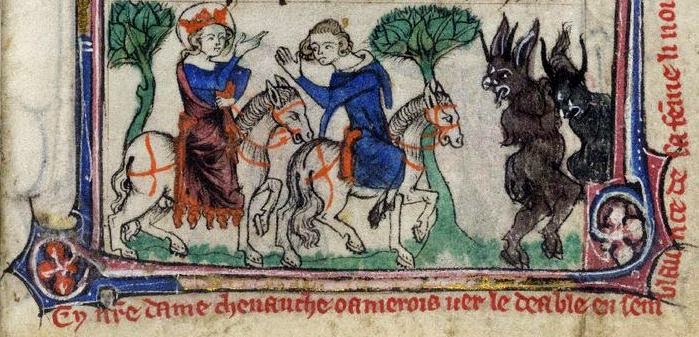 Cy n̄re dame cheuauche o amerois uer le deable en sem
blaunce de sa feme li noi